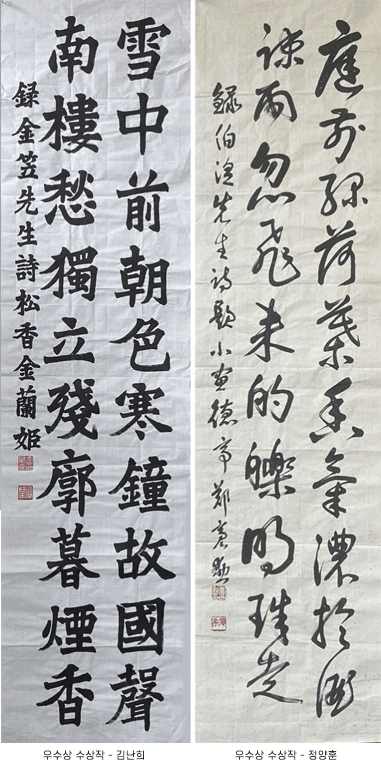 雪中前朝色寒鐘故國聲
南樓愁獨立殘廓暮煙香
録金笠先生詩松香金蘭姫
우수상 수상작 - 김난희
庭前綠荷葉香氣濃於酒
疎雨忽飛来的皪明珠走
録伯先生詩題小畫德亭鄭亮
우수상 수상작 - 정양훈